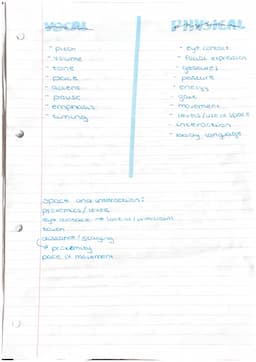 VOCAL
- pitch
- volume
- tone
- pace
- accent
- pause
- emphasis
- timing
PHYSICAL
- eye contact
- facial expression
- gestures
- posture
- energy
- gait
- movement
- levels/use of space
- interaction
- body language
Space and interaction:
proxemics/levels
eye contact →
touch
distance/staging
→ proximity
pace of movement